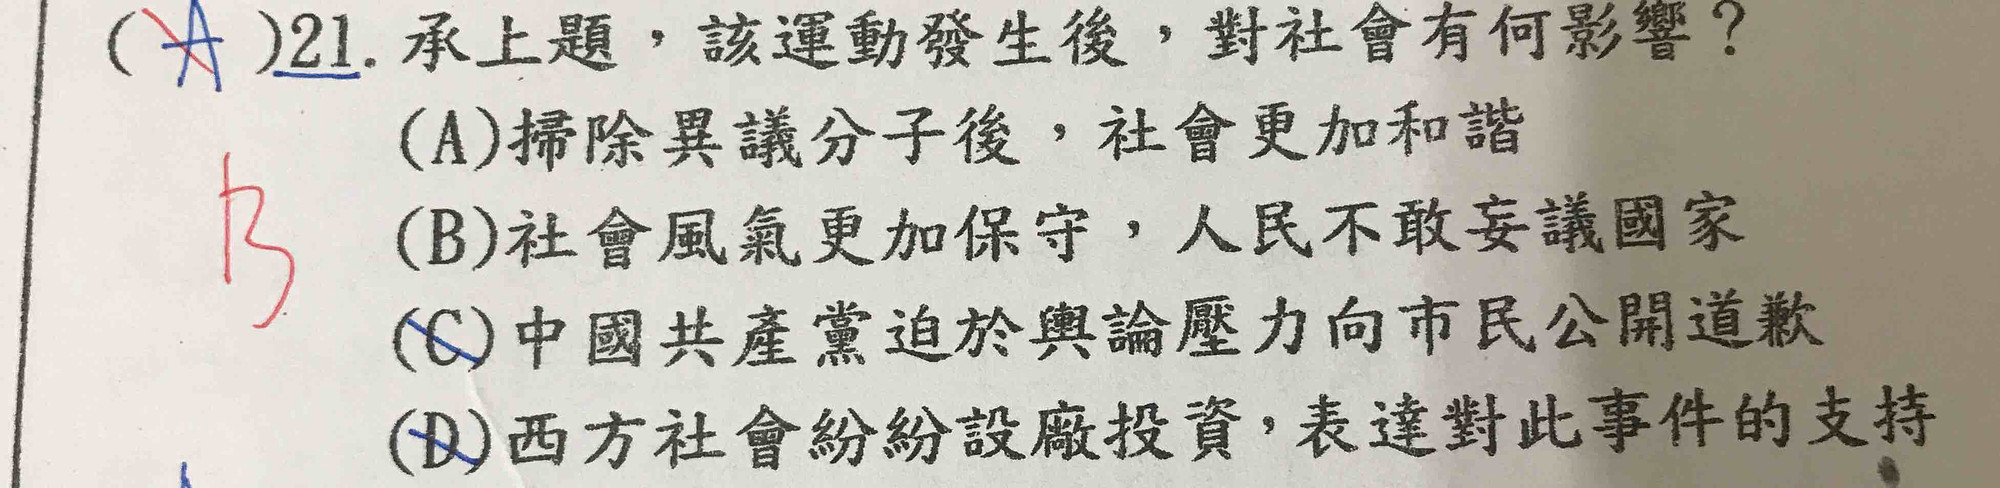 (A)21.承上題，該運動發生後，對社會有何影響？
(A)掃除異議分子後，社會更加和諧
B
(B)社會風氣更加保守，人民不敢妄議國家
(C)中國共產黨迫於輿論壓力向市民公開道歉
(D)西方社會紛紛設廠投資，表達對此事件的支持